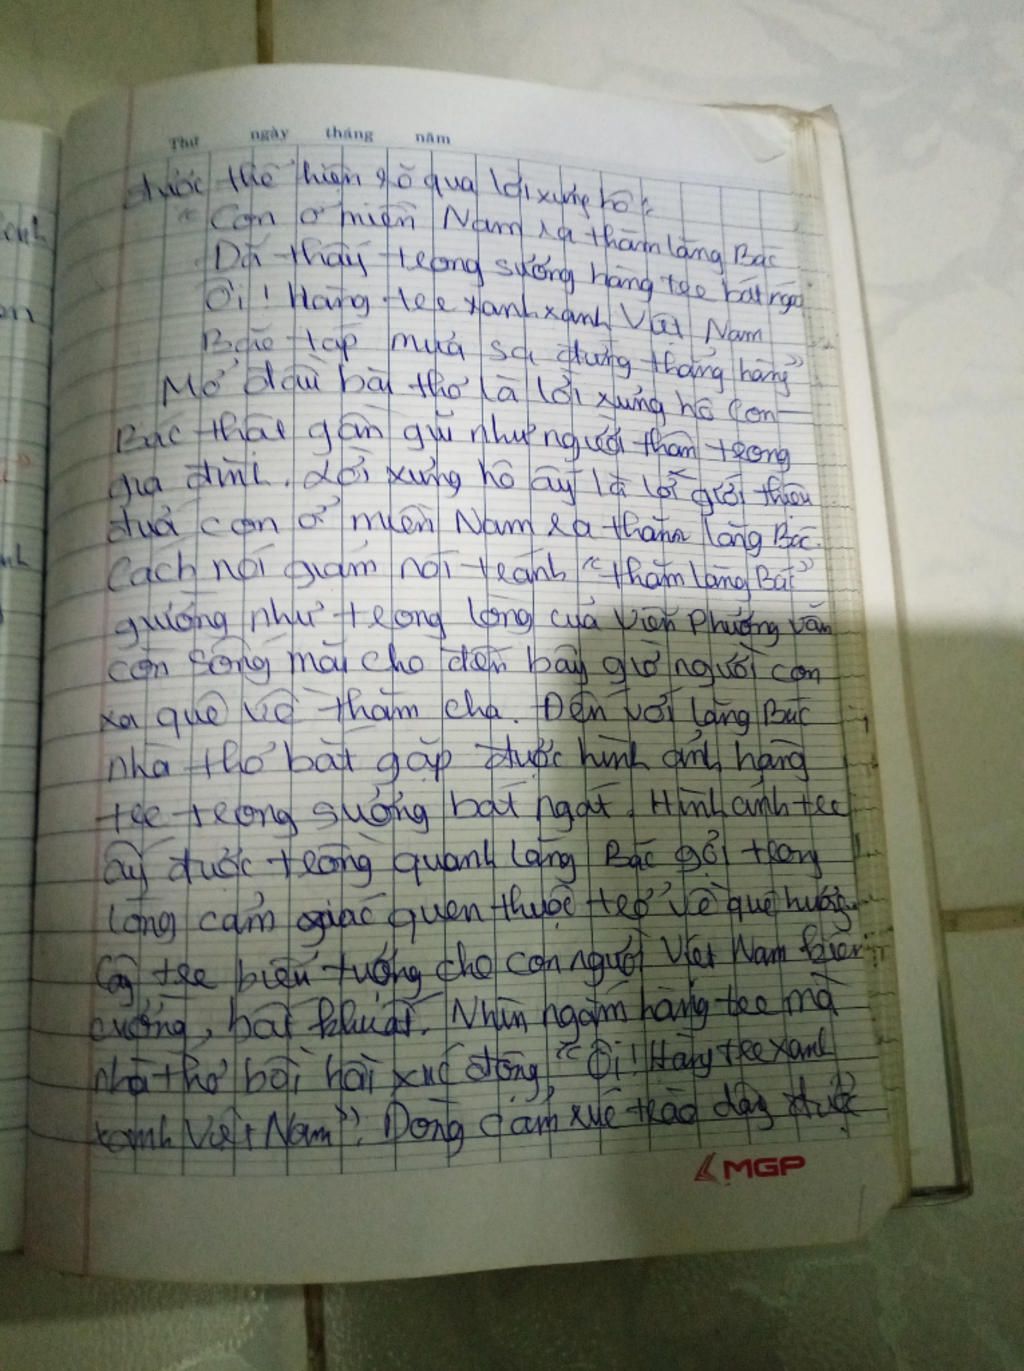 Thứ ngày tháng năm
được thể hiện rõ qua lời xưng hô:
"Con ở miền Nam ra thăm lăng Bác
Đã thấy trong sương hàng tre bát ngát
Ôi! Hàng tre xanh xanh Việt Nam
Bão táp mưa sa đứng thẳng hàng"
Mở đầu bài thơ là lời xưng hô con
Bác thật gần gũi như người thân trong
gia đình. Lời xưng hô ấy là lời giới thiệu
đứa con ở miền Nam ra thăm lăng Bác.
Cách nói giảm nói tránh "thăm lăng Bác"
gường như trong lòng của Viễn Phương vẫn
còn sống mãi cho đến bây giờ người con
xa quê về thăm cha. Đến với lăng Bác
nhà thơ bắt gặp được hình ảnh hàng
tre trong sương bát ngát. Hình ảnh tre
ấy được trồng quanh lăng Bác gởi trong
lòng cảm giác quen thuộc trở về quê hương.
Cây tre biểu tượng cho con người Việt Nam kiên
cường, bất khuất. Nhìn ngắm hàng tre mà
nhà thơ bồi hồi xúc động "Ôi! Hàng tre xanh
xanh Việt Nam". Dòng cảm xúc trào dâng được
MGP